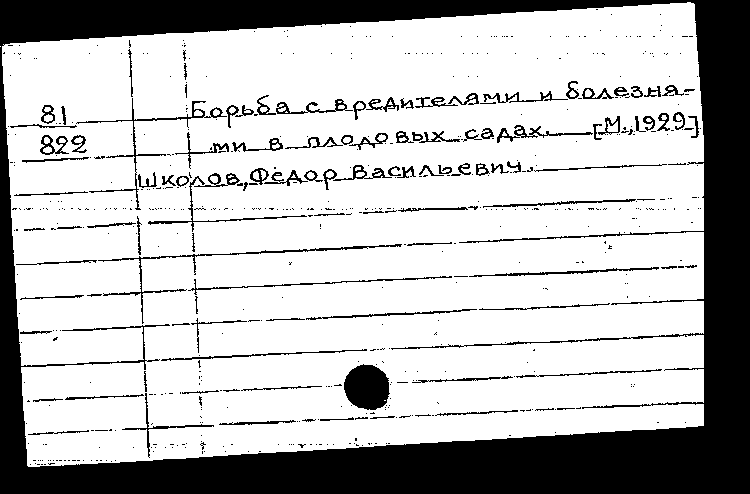 81 Борьба с вредителями и болезня-
822 ми в плодовых садах. [М., 1929]
Школов, Фёдор Васильевич.